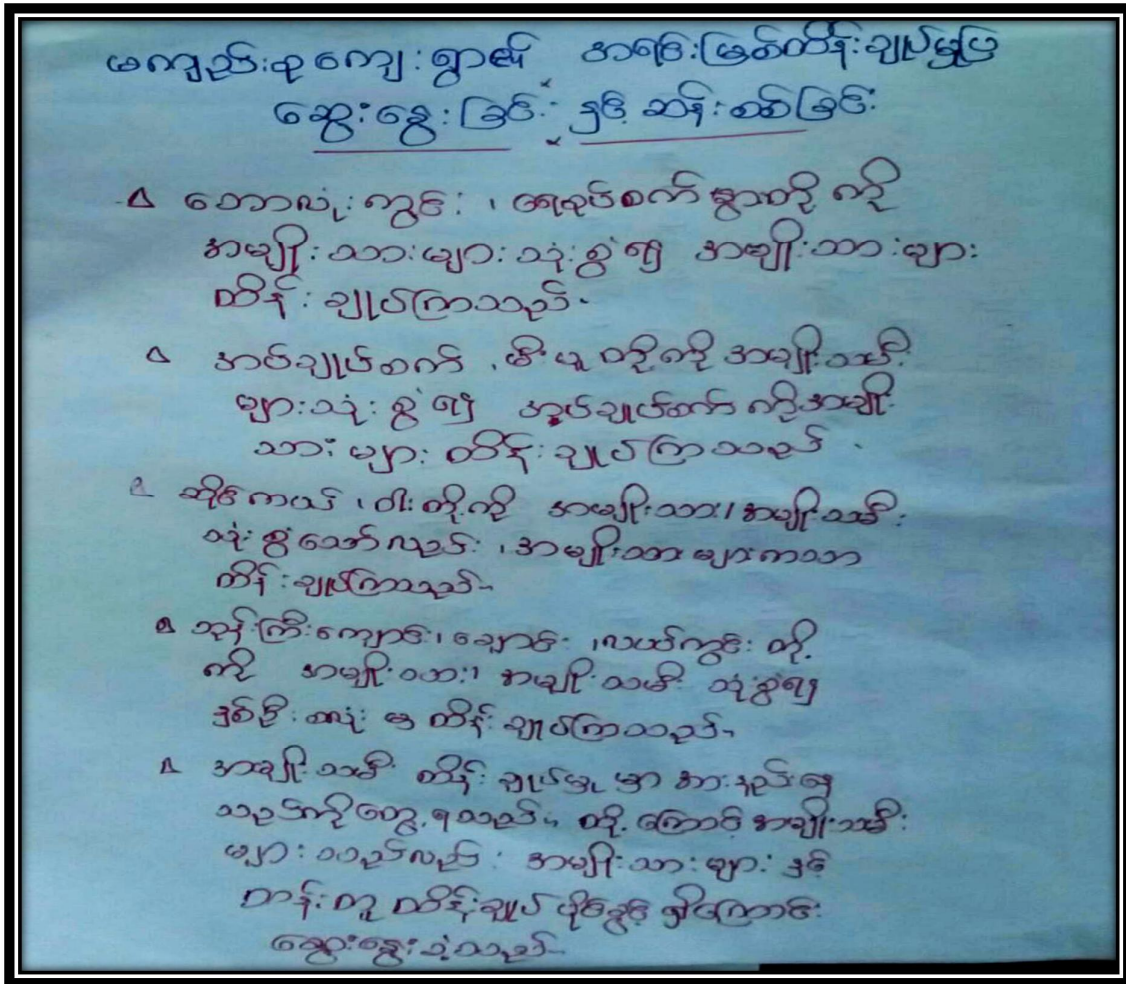 မကျည်းစုကျေးရွာ၏ အရင်းမြစ်ထိန်းချုပ်မှုပြ
ဆွေးနွေးခြင်း နှင့် ဆန်းစစ်ခြင်း
ဘောလုံးကွင်း ၊ ရေစုပ်စက် စွာတို့ ကို
အမျိုးသားများ သုံးစွဲ၍ အမျိုးသားများ
ထိန်းချုပ်ကြသည်။
အပ်ချုပ်စက် ၊ မီးပူ တို့ကို အမျိုးသမီး
များသုံးစွဲ၍ အပ်ချုပ်စက် ကိုအမျိုး
သားများ ထိန်းချုပ်ကြသည်။
ဆိုင်ကယ် ၊ ဝါး တို့ကို အမျိုးသား၊ အမျိုးသမီး
သုံးစွဲသော်လည်း ၊ အမျိုးသားများကသာ
ထိန်းချုပ်ကြသည်။
ဘုန်းကြီးကျောင်း၊ ချောင်း ၊ လယ်ကွင်း တို့
ကို အမျိုးသား၊ အမျိုးသမီး သုံးစွဲ၍
နှစ်ဦးစလုံး မှ ထိန်းချုပ်ကြသည်။
အမျိုးသမီး ထိန်းချုပ်မှု မှာ အားနည်း၍
သည်ကိုတွေ့ရသည်။ ထို့ကြောင့် အမျိုးသမီး
များ သည်လည်း အမျိုးသားများ နှင့်
တန်းတူ ထိန်းချုပ် ပိုင်ခွင့် ရှိကြောင်း
ဆွေးနွေးခဲ့သည်။